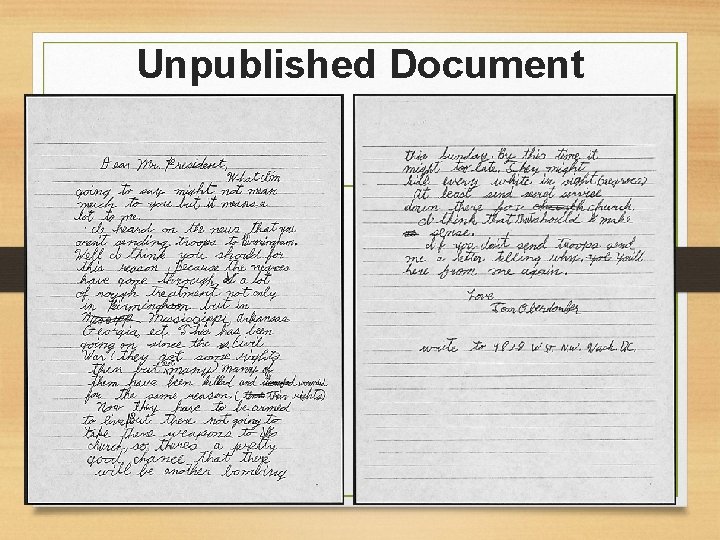 Unpublished Document
Dear Mr. President,
What I'm
going to say might not mean
much to you but it means a
lot to me.
I heard on the news that you
arent sending troops to Birmingham.
Well I think you should for
this reason, Because the negros
have gone through a lot
of rough treatment not only
in Birmingham but in
Mississippi, Arkansas
Georgia, ect. This has been
going on since the Civil
War! they got some rights
then but many many of
them have been killed and
for the same reason (their rights)
Now they have to be armed
to live but there not going to
take there weapons to
church so theres a pretty
good chance that there
will be another bombing
this Sunday. By this time it
might too late. They might
kill every white in sight (negroes)
at least send
down there for church.
I think that should make
sense.
If you don't send troops send
me a leter telling why. you'll
here from me again.
Love
Tom Oberdorfer
write to